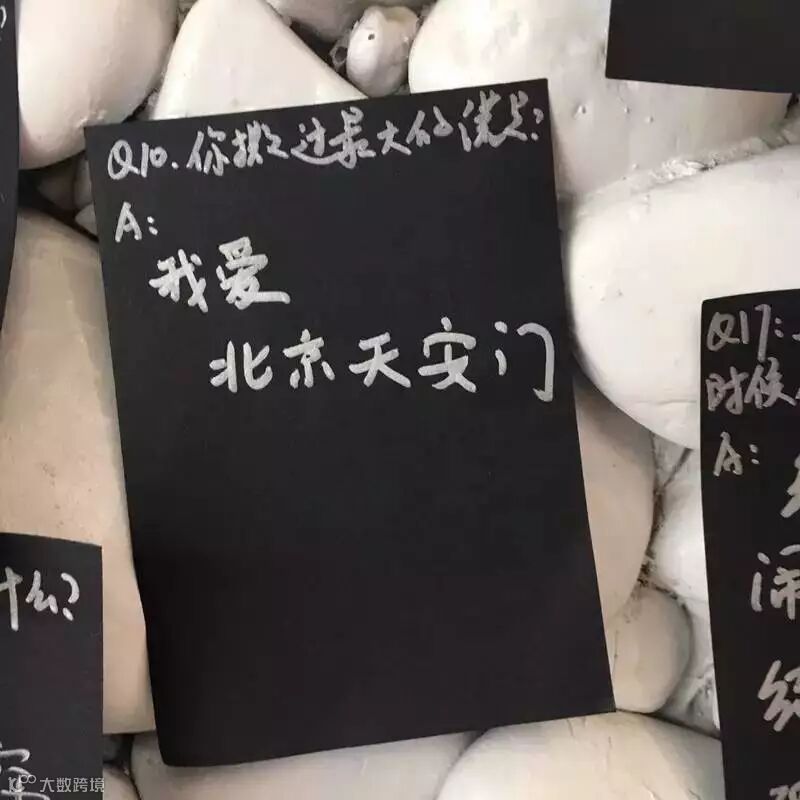 Q10.你撒过最大的谎是?
A:
我爱
北京天安门
Q17:
时候
A:
闹
什么?
大数跨境